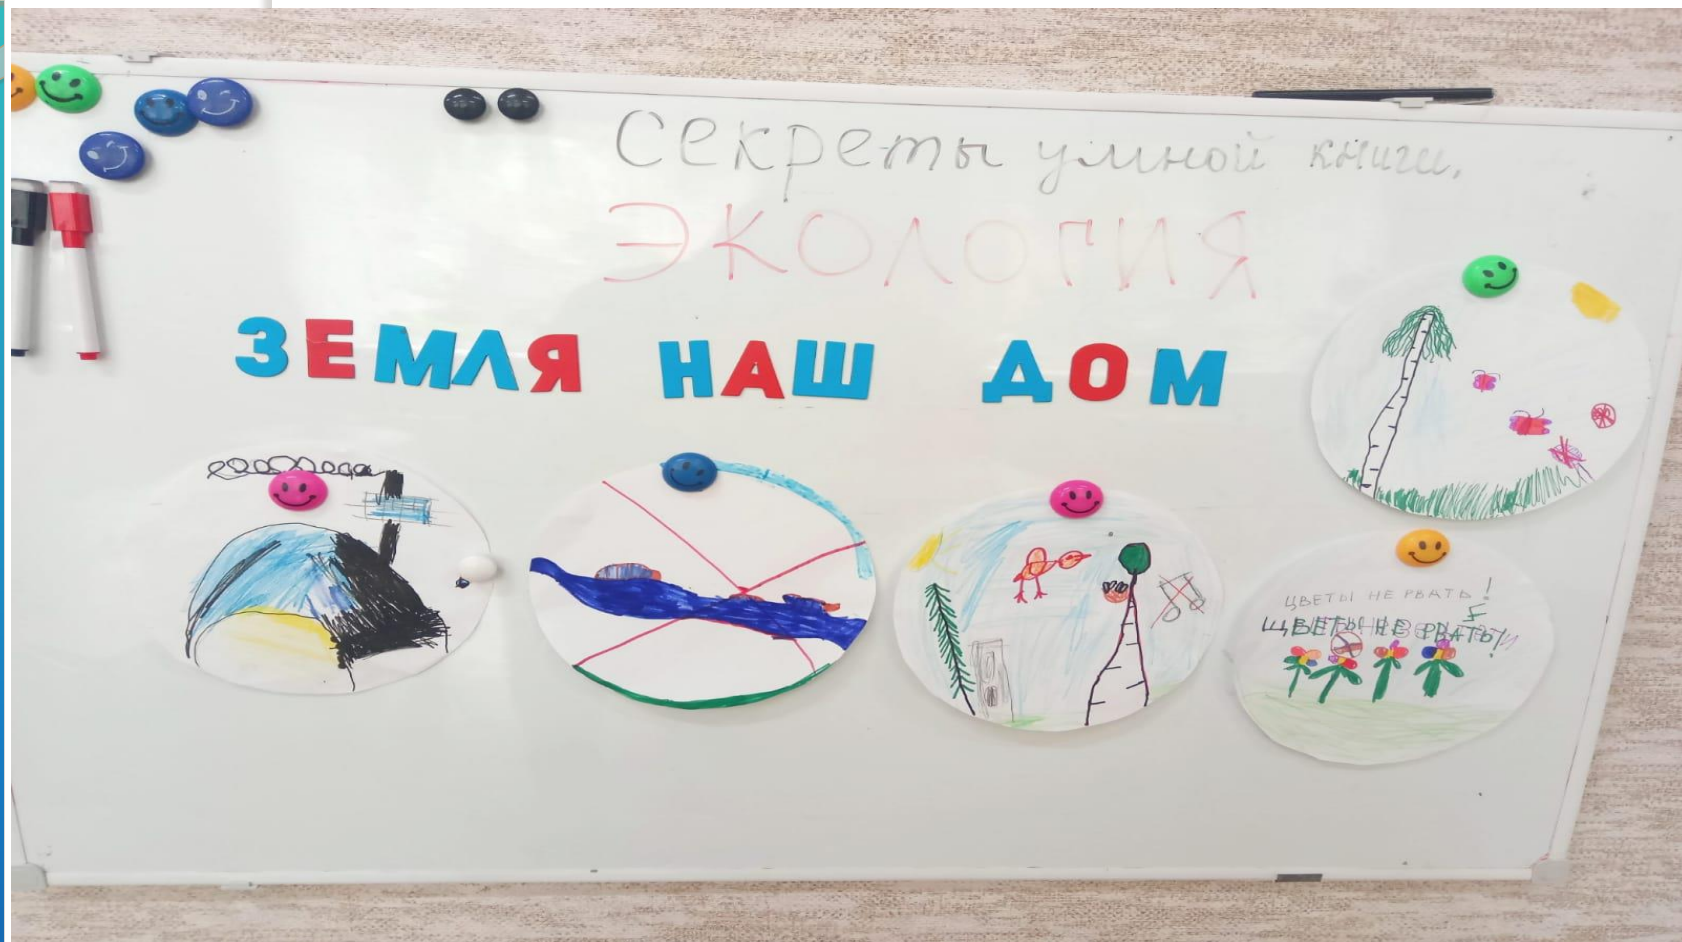 Секреты умной книги.
ЭКОЛОГИЯ
ЗЕМЛЯ НАШ ДОМ
ЦВЕТЫ НЕ РВАТЬ!
ЦВЕТЫ НЕ РВАТЬ!